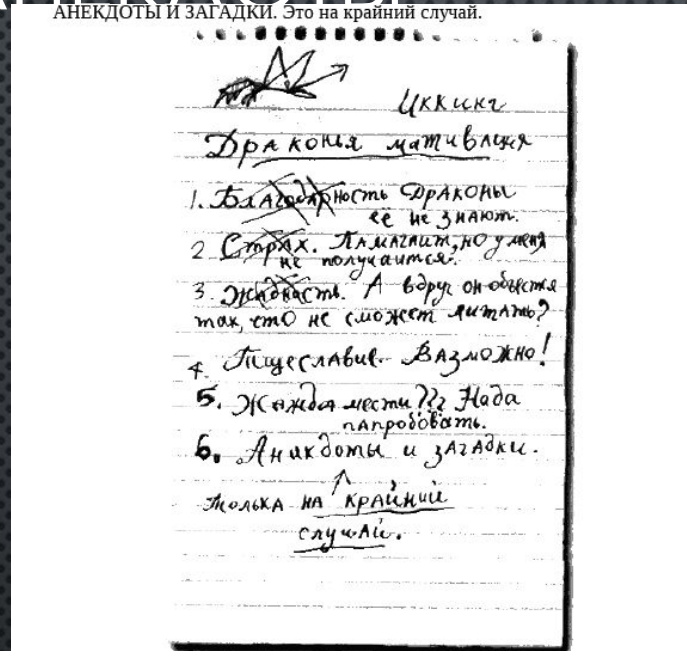 АНЕКДОТЫ И ЗАГАДКИ. Это на крайний случай.
Иккинг
Драконья мативация
1. Благодарность Драконы
её не знают.
2. Страх. Памагаит, но у меня
не получаится.
3. Жадность. А вдруг он объестся
так, что не сможет литать?
4. Тщеславие. Вазможно!
5. Жажда мести??? Нада
папробовать.
6. Анакдоты и загадки.
Толька на крайний
случай.